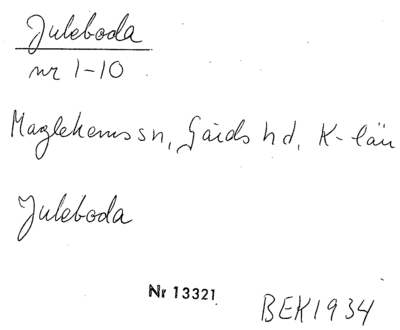 Juleboda
nr 1-10
Maglehems sn, Gärds hd, K-län
Juleboda
Nr 13321
BEK1934